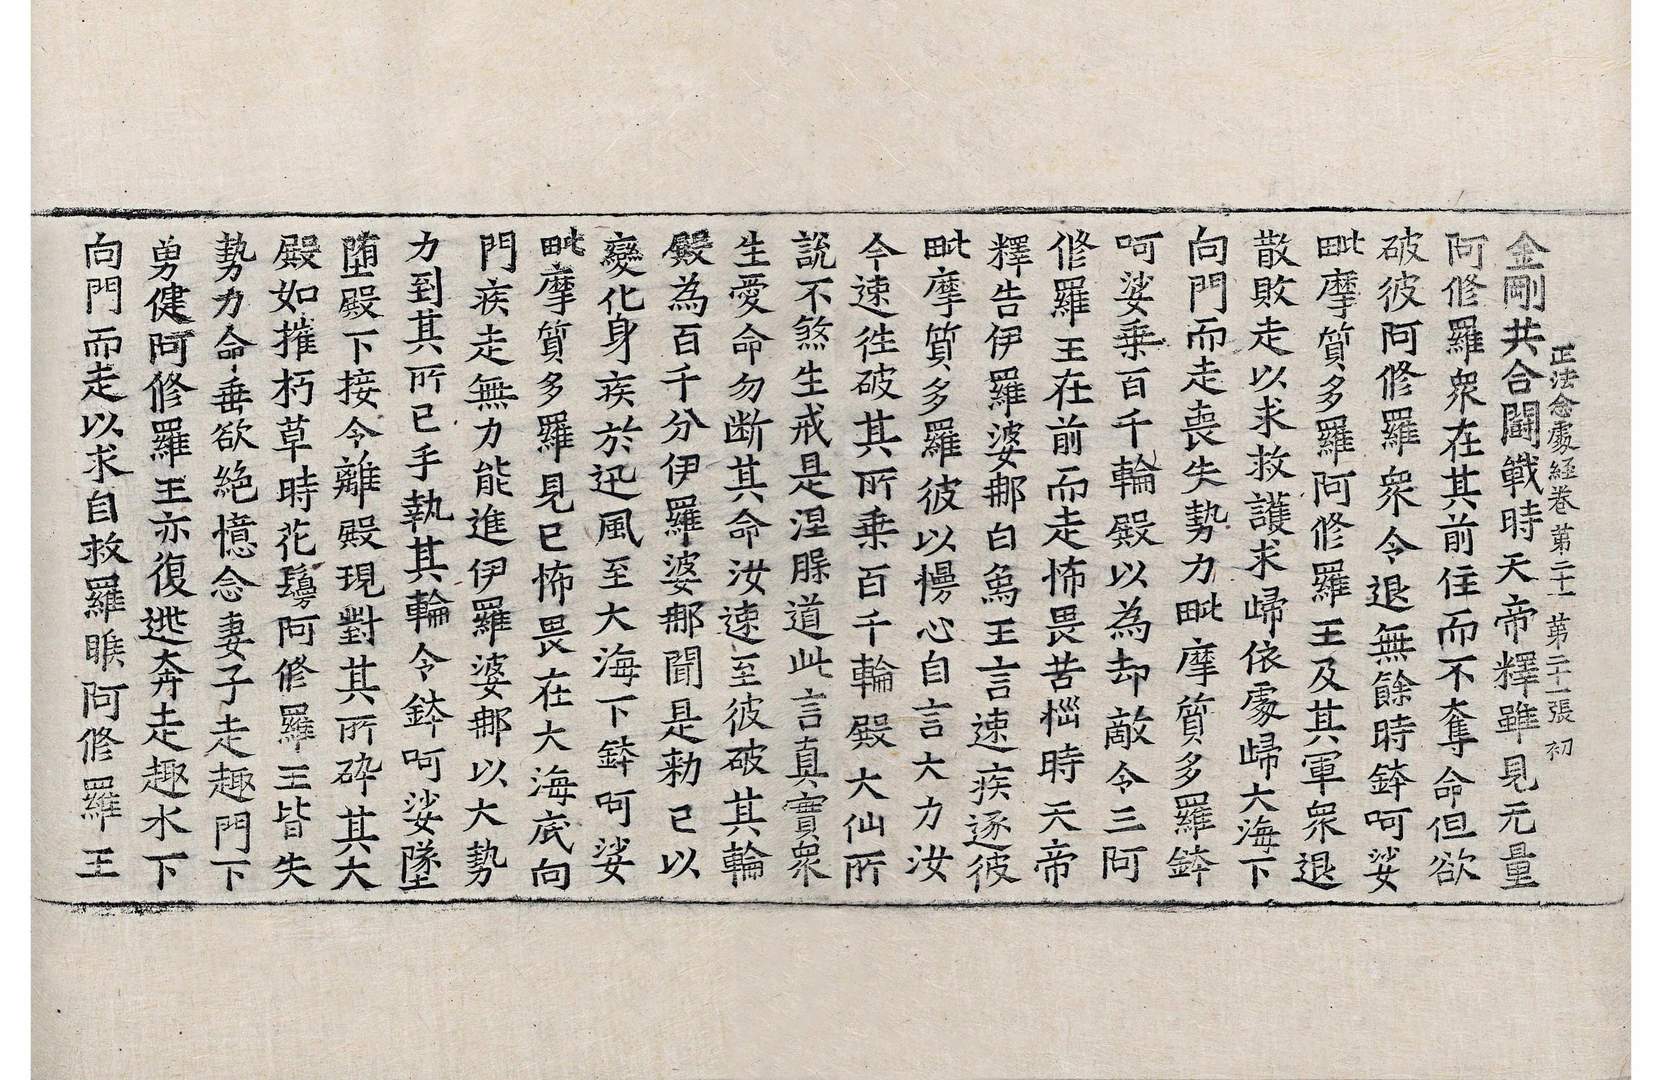 正法念處経卷第二十一 第二十一張 初
金剛共合鬪戰時天帝釋雖見无量
阿修羅衆在其前住而不奪命但欲
破彼阿修羅衆令退無餘時鉢呵娑
毗摩質多羅阿修羅王及其軍衆退
散敗走以求救護求歸依處歸大海下
向門而走喪失勢力毗摩質多羅鉢
呵娑乗百千輪殿以為却敵令三阿
修羅王在前而走怖畏苦惱時天帝
釋告伊羅婆那白象王言速疾逐彼
毗摩質多羅彼以慢心自言大力汝
今速往破其所乗百千輪殿大仙所
說不煞生戒是涅槃道此言真實衆
生愛命勿断其命汝速至彼破其輪
殿為百千分伊羅婆那聞是勑已以
變化身疾於迅風至大海下鉢呵娑
毗摩質多羅見已怖畏在大海底向
門疾走無力能進伊羅婆那以大勢
力到其所已手執其輪令鉢呵娑墜
墮殿下接令離殿現對其所碎其大
殿如摧朽草時花鬘阿修羅王皆失
勢力命垂欲絶憶念妻子走趣門下
勇健阿修羅王亦復逃奔走趣水下
向門而走以求自救羅睺阿修羅王